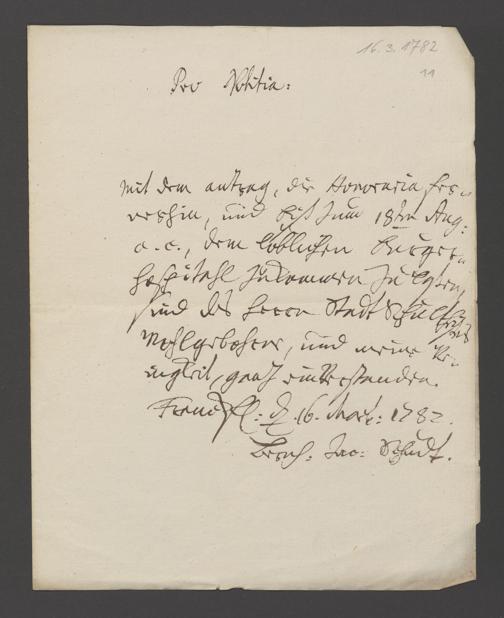 16.3.1782
11
Pro Notitia:
mit dem antrag, die Honoraria fer-
nerhin, und biß zum 18ten Aug:
a. c., dem löblichen Bürger-
hospitahl zukommen zu laßen,
sind des Herrn Stadt Schultheißen
Wohlgebohrn, und meine We-
nigkeit, ganz einverstanden.
Franckf: d. 16. Mart: 1782.
Jac: Schudt.